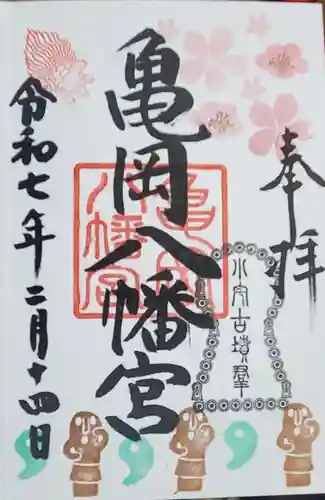 奉拝
亀岡八幡宮
亀岡
八幡宮
小穴古墳群
令和七年二月十四日